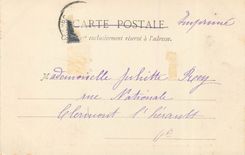 CARTE POSTALE
Imprimé
Ce côté est exclusivement réservé à l'adresse.
Mademoiselle Juliette
rue Nationale
Clermont l'Hérault